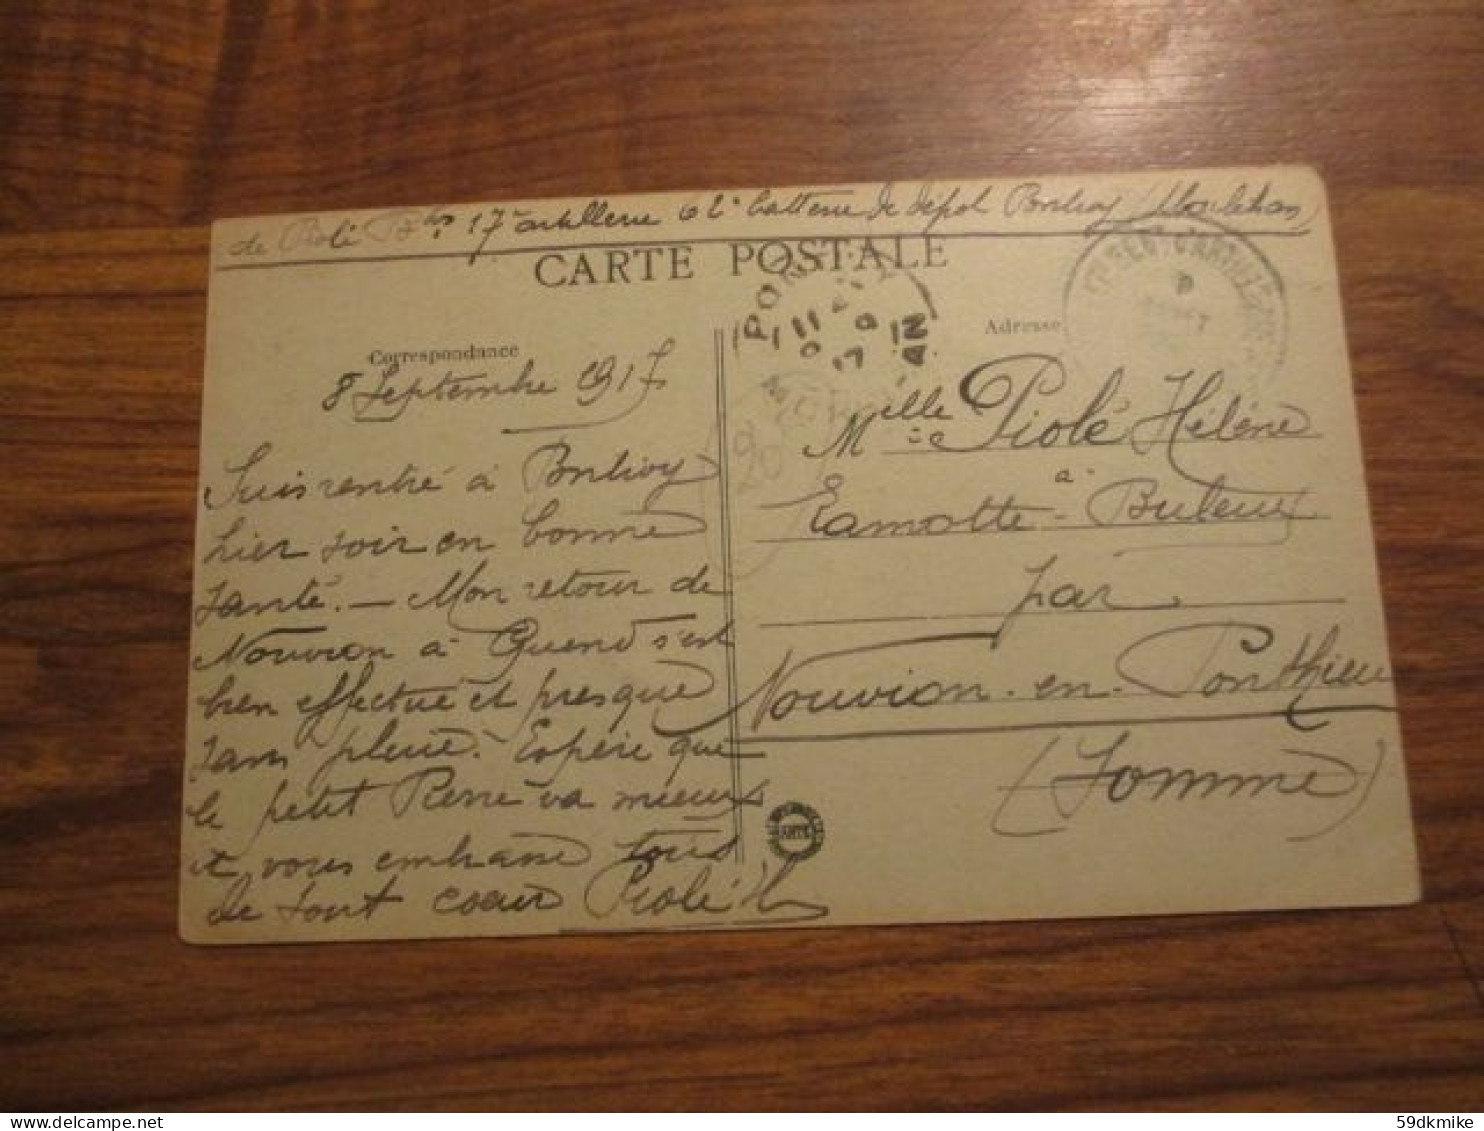 de Piolé 17e artillerie 62e batterie de dépôt Pontivy (Morbihan)
CARTE POSTALE
Correspondance
Adresse
8 Septembre 1917
Suis rentré à Pontivy
hier soir en bonne
santé. — Mon retour de
Nouvion à Quend s'est
bien effectué et presque
sans pluie. Espère que
le petit René va mieux
et vous embrasse tous
de tout coeur Piolé
Melle Piolé Hélène
à
Lamotte-Buleux
par
Nouvion-en-Ponthieu
(Somme)
59dkmike